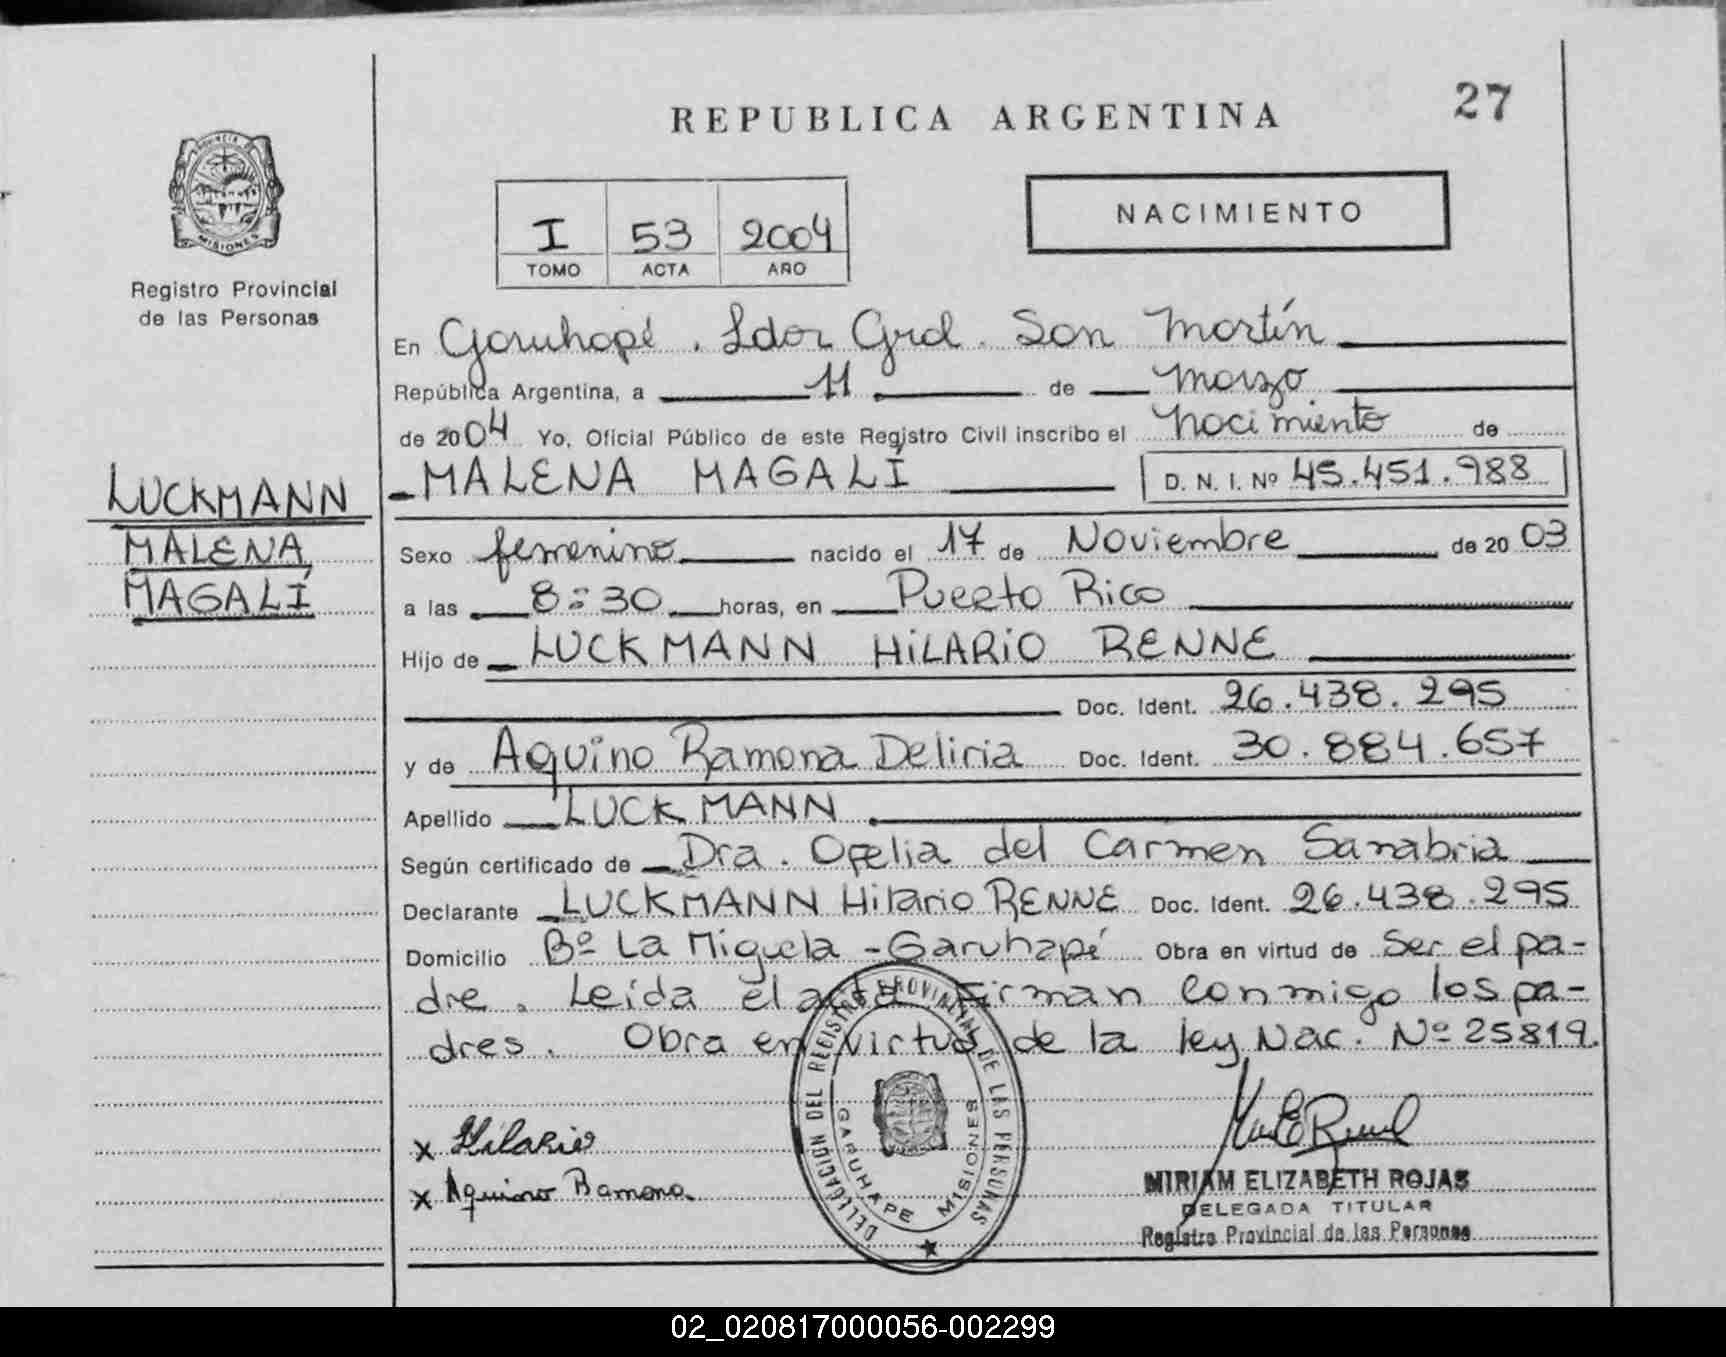 27
REPUBLICA ARGENTINA
PROVINCIA DE
MISIONES
Registro Provincial
de las Personas
I 53 2004
TOMO ACTA AÑO
NACIMIENTO
En Garuhapé . Ldor Gral. San Martín
República Argentina, a 11 de marzo
de 2004 Yo, Oficial Público de este Registro Civil inscribo el nacimiento de
MALENA MAGALÍ D. N. I. Nº 45.451.988
LUCKMANN
MALENA
MAGALÍ
Sexo femenino nacido el 17 de Noviembre de 2003
a las 8:30 horas, en Puerto Rico
Hijo de LUCKMANN HILARIO RENNE
Doc. Ident. 26.438.295
y de Aquino Ramona Deliria Doc. Ident. 30.884.657
Apellido LUCKMANN
Según certificado de Dra. Ofelia del Carmen Sanabria
Declarante LUCKMANN Hilario RENNE Doc. Ident. 26.438.295
Domicilio Bº La Miguela - Garuhapé Obra en virtud de Ser el pa-
dre. Leída el acta Firman conmigo los pa-
dres. Obra en virtud de la ley Nac. Nº 25819.
x Hilario
x Aquino Ramona
DELEGACION DEL REGISTRO PROVINCIAL DE LAS PERSONAS
GARUHAPE MISIONES
MIRIAM ELIZABETH ROJAS
DELEGADA TITULAR
Registro Provincial de las Personas
02_020817000056-002299